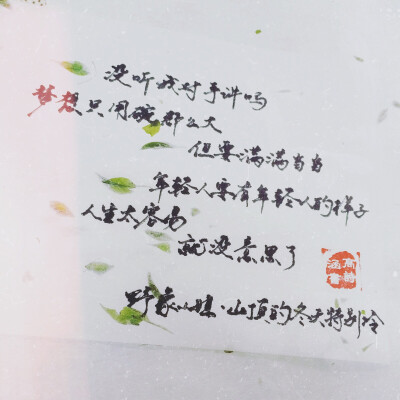 没听我对手讲吗
梦想只用碗那么大
但要满满当当
年轻人要有年轻人的样子
人生太容易
就没意思了
野象小姐·山顶的冬天特别冷